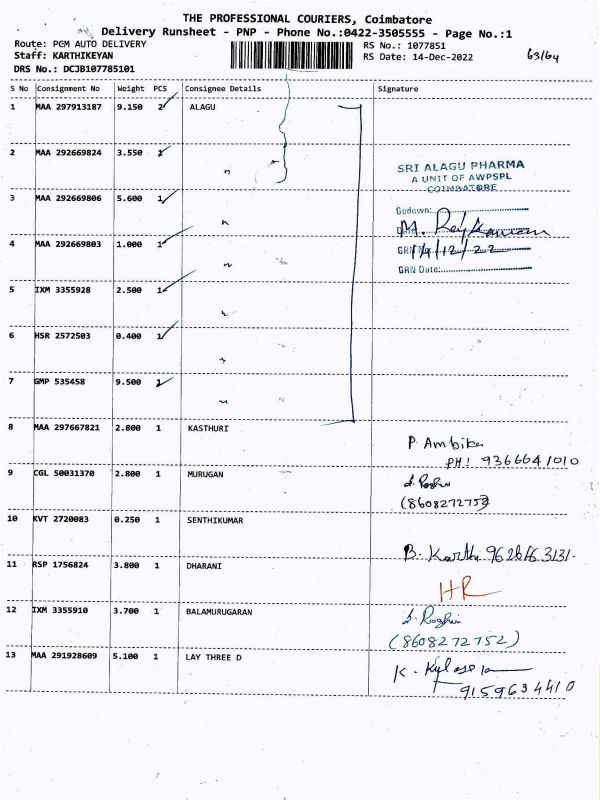 THE PROFESSIONAL COURIERS, Coimbatore
Delivery Runsheet - PNP - Phone No.:0422-3505555 - Page No.:1
Route: PGM AUTO DELIVERY RS No.: 1077851
Staff: KARTHIKEYAN RS Date: 14-Dec-2022 63/64
DRS No.: DCJB107785101
S No Consignment No Weight PCS Consignee Details Signature
1 MAA 297913187 9.150 2 ALAGU
2 MAA 292669824 3.550 1 "
SRI ALAGU PHARMA
A UNIT OF AWPSPL
COIMBATORE
3 MAA 292669806 5.600 1 "
Godown:
M.
4 MAA 292669803 1.000 1 "
GRN No 14/12/22
GRN Date:
5 IXM 3355928 2.500 1 "
6 HSR 2572503 0.400 1 "
7 GMP 535458 9.500 1 "
8 MAA 297667821 2.800 1 KASTHURI
P. Ambika
PH: 9366641010
9 CGL 50031370 2.800 1 MURUGAN
(8608272752
10 KVT 2720083 0.250 1 SENTHIKUMAR
B. Karthi
11 RSP 1756824 3.800 1 DHARANI
HR
12 IXM 3355910 3.700 1 BALAMURUGARAN
S. Roshin
(8608272752)
13 MAA 291928609 5.100 1 LAY THREE D
K.
9159634410